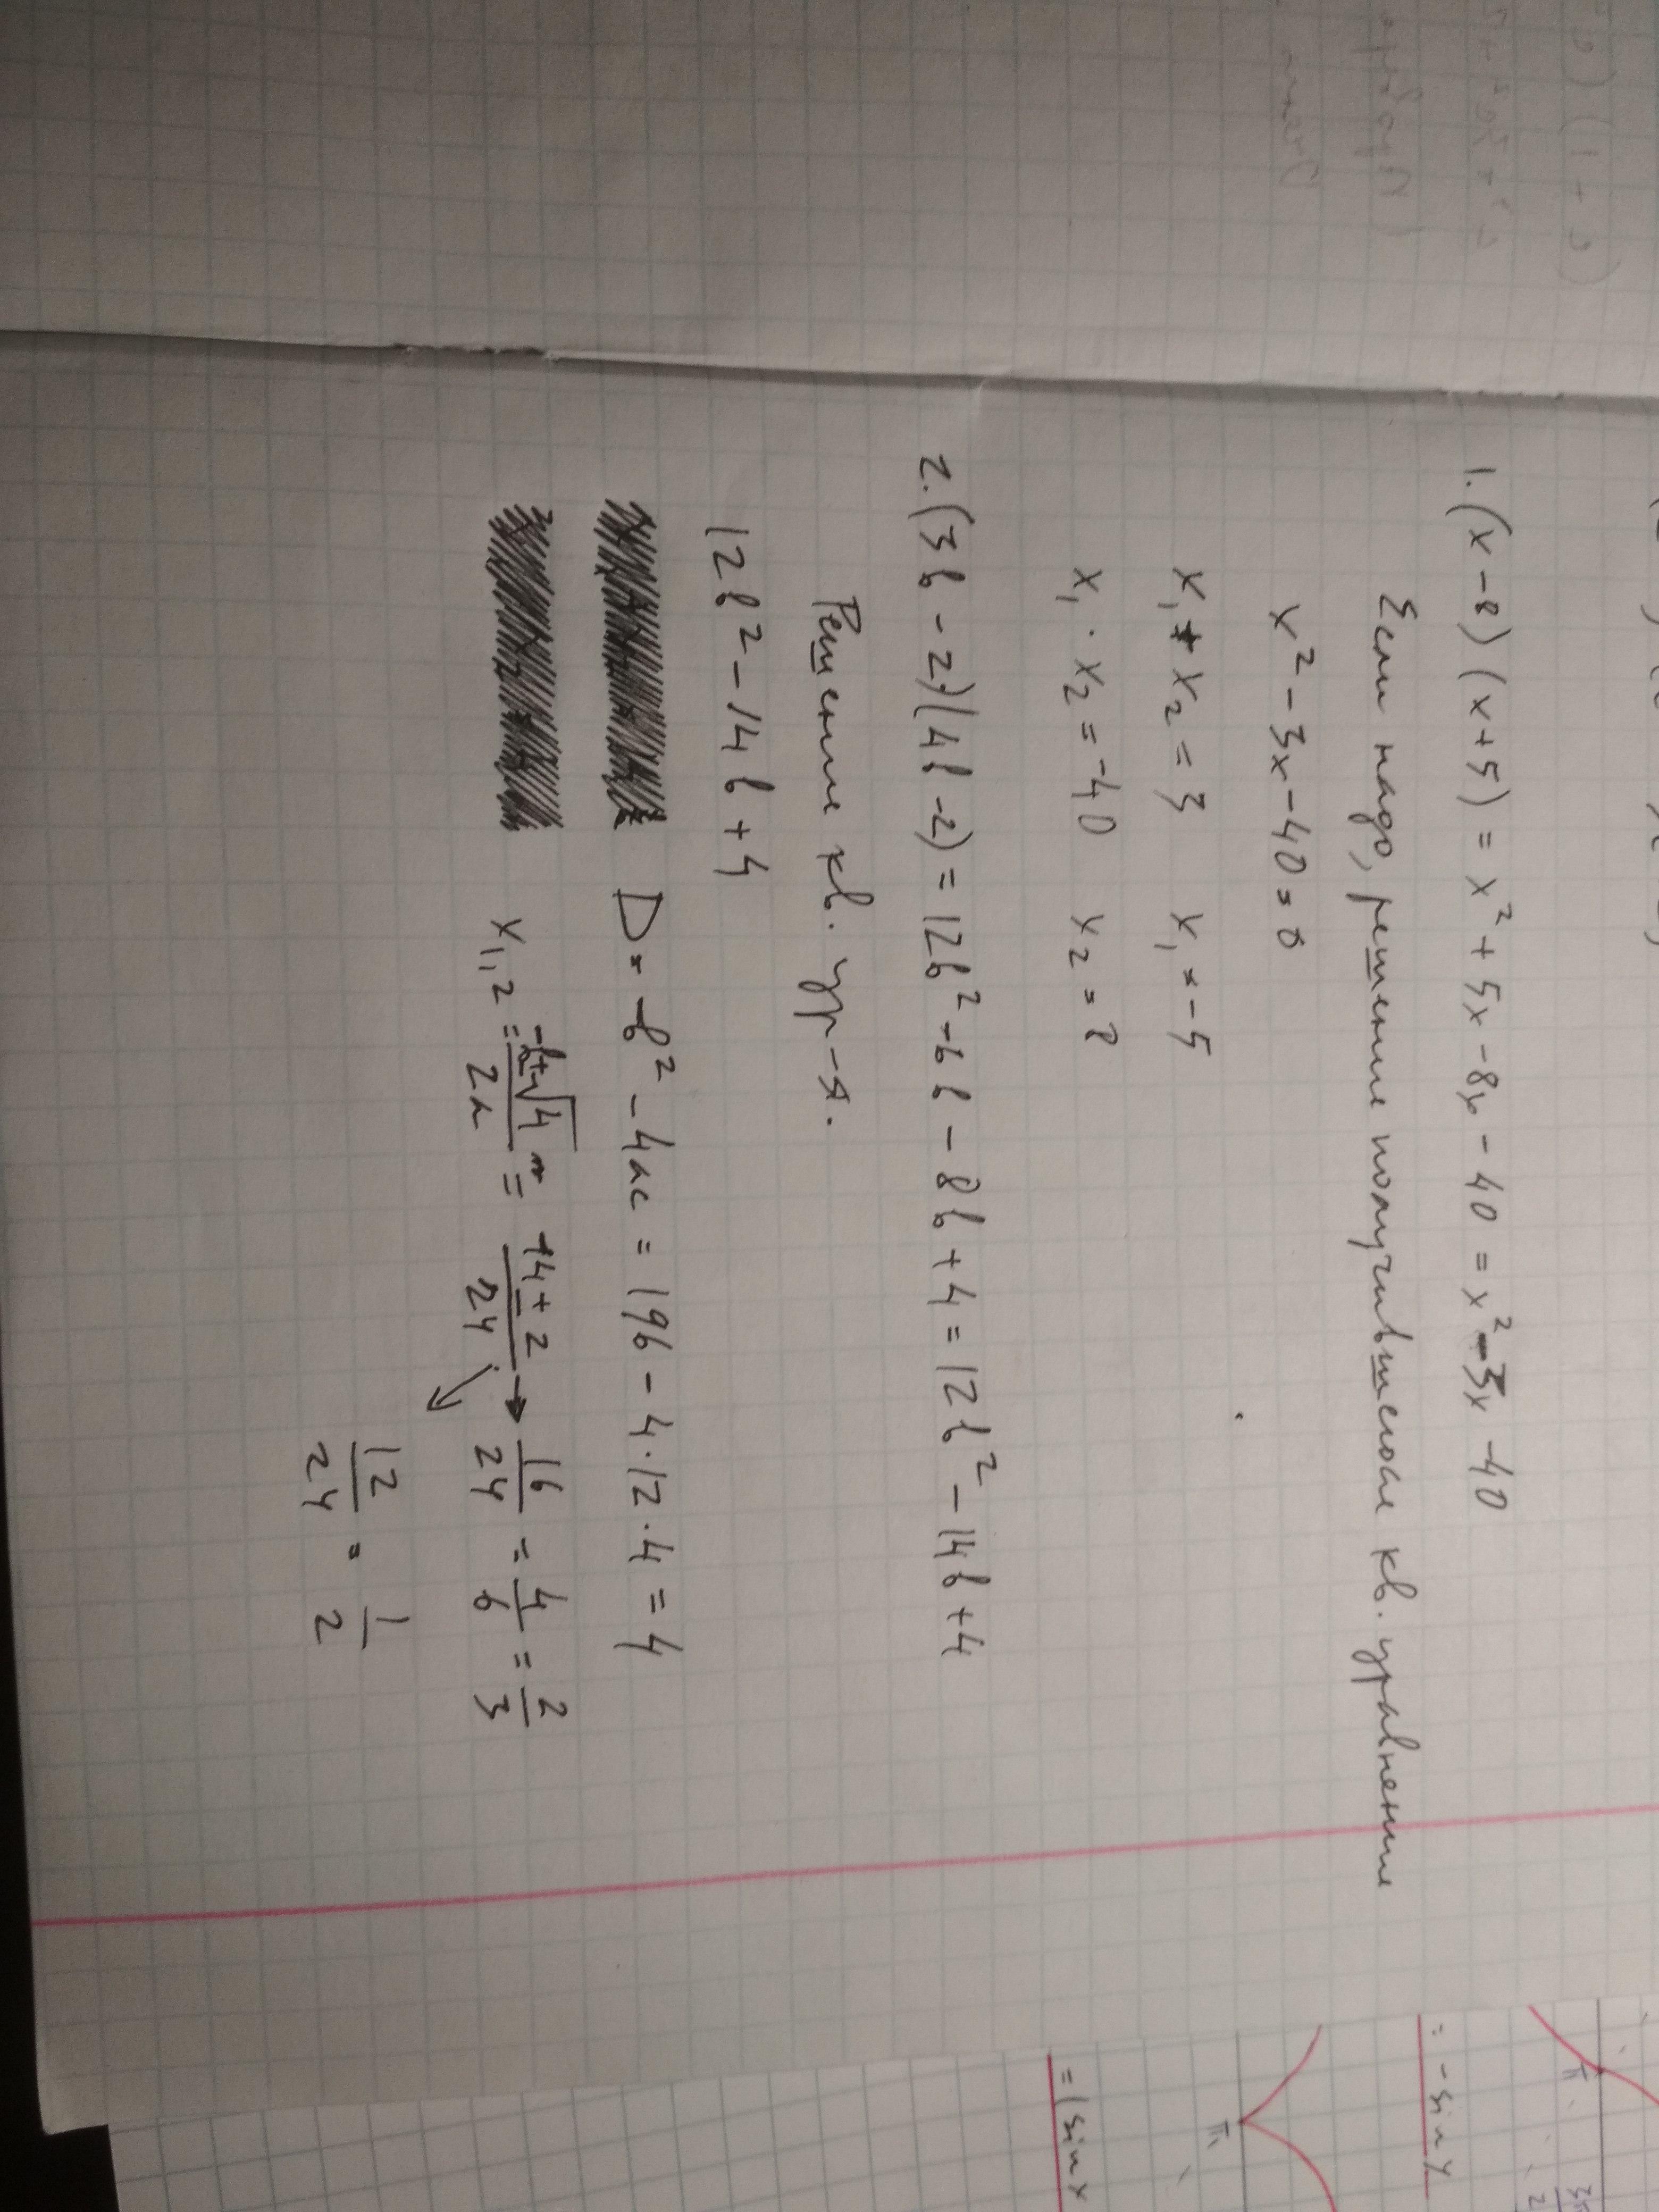 1. (x-8)(x+5) = x² + 5x - 8x - 40 = x² - 3x - 40
Если надо, решение получившегося кв. уравнения
x² - 3x - 40 = 0
x₁ + x₂ = 3 x₁ = -5
x₁ · x₂ = -40 x₂ = 8
2. (3b - 2)(4b - 2) = 12b² - 6b - 8b + 4 = 12b² - 14b + 4
Решение кв. ур-я.
12b² - 14b + 4
D = b² - 4ac = 196 - 4·12·4 = 4
x₁,₂ = (-b ± √4)/2a = (14 ± 2)/24 → 16/24 = 4/6 = 2/3
↘ 12/24 = 1/2
= -sin x
π
= |sin x
π